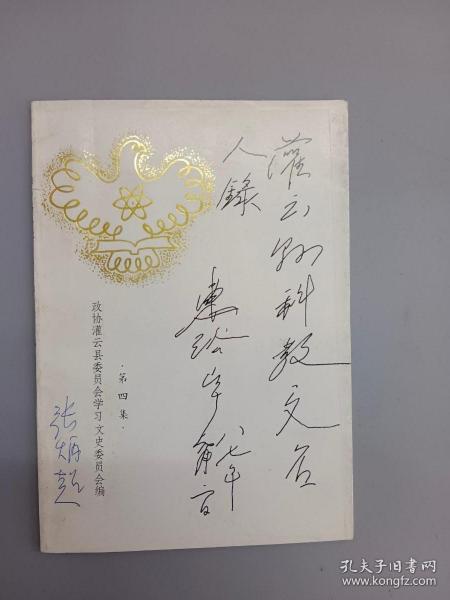 灌云县科教文名
人錄
惠浴宇
八七年
·第四集·
政协灌云县委员会学习文史委员会编
张炳
孔夫子旧书网
www.kongfz.com